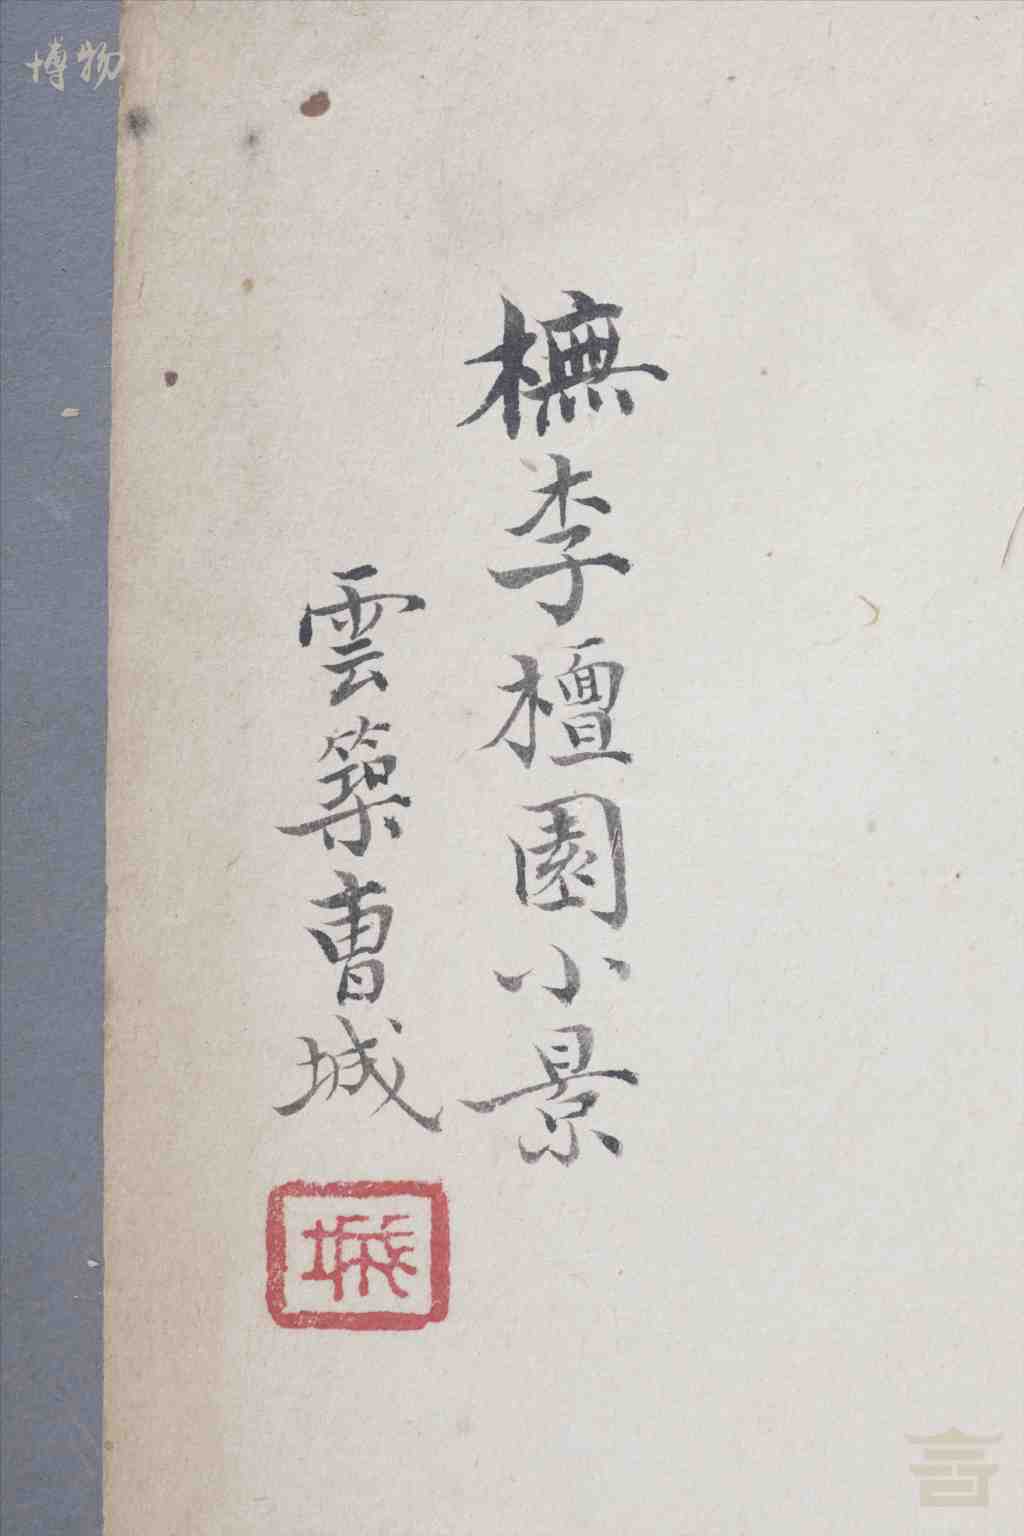 橅李檀園小景
雲築曹城
城
博物